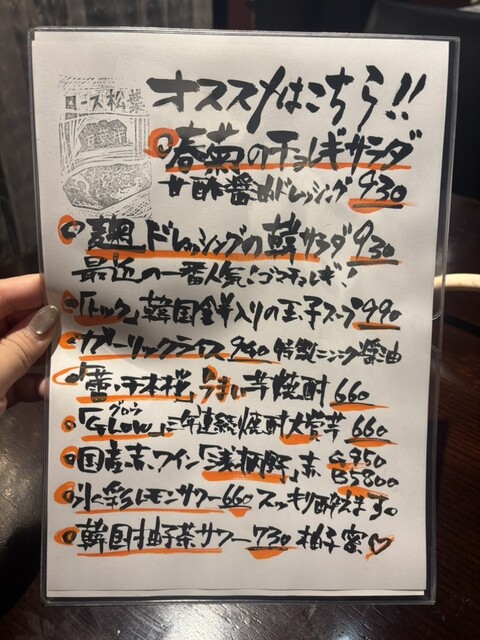 ロース松葉
オススメはこちら!!
春菊のチョレギサラダ
甘酢醤油ドレッシング 930
麹ドレッシングの韓サラダ 930
最近の一番人気!ゴマチョレギ!
「トック」韓国全羊入りの玉子スープ 990
ガーリックライス 950 特製ニンニク醤油
千本桜」うまい芋焼酎 660
グロウ
「GLOW」三年連続焼酎大賞芋 660
国産赤ワイン「浅柄野」赤 G950
B5800
氷彩レモンサワー660 スッキリ酔えます。
韓国柚子茶サワー730 柚子蜜♡